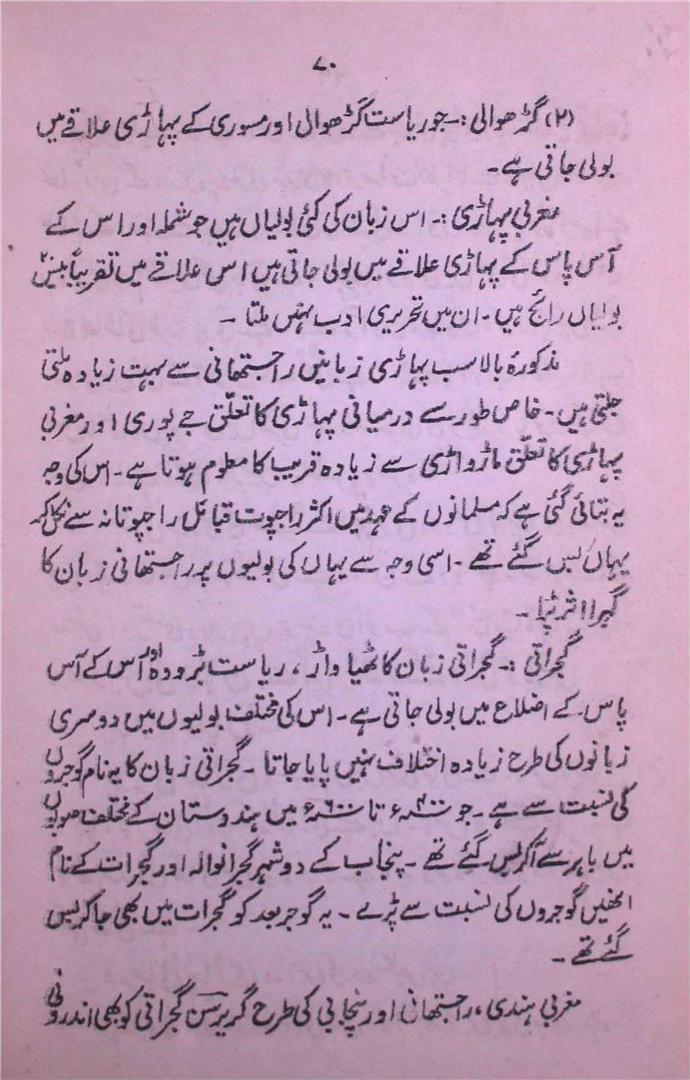 ۷۰
(۲) گڑھوالی :۔ جو ریاست گڑھوالی اور مسوری کے پہاڑی علاقے میں
بولی جاتی ہے۔
مغربی پہاڑی :۔ اس زبان کی کئی بولیاں ہیں جو شملہ اور اس کے
آس پاس کے پہاڑی علاقے میں بولی جاتی ہیں اس علاقے میں تقریباً تیس
بولیاں رائج ہیں۔ ان میں تحریری ادب نہیں ملتا ۔
مذکورۂ بالا سب پہاڑی زبانیں راجستھانی سے بہت زیادہ ملتی
جلتی ہیں۔ خاص طور سے درمیانی پہاڑی کا تعلّق جے پوری اور مغربی
پہاڑی کا تعلّق ماڑواڑی سے زیادہ قریب کا معلوم ہوتا ہے۔ اس کی وجہ
یہ بتائی گئی ہے کہ مسلمانوں کے عہد میں اکثر راجپوت قبائل راجپوتانہ سے نکل کر
یہاں بس گئے تھے ۔ اسی وجہ سے یہاں کی بولیوں پر راجستھانی زبان کا
گہرا اثر پڑا ۔
گجراتی :۔ گجراتی زبان کاٹھیا واڑ ، ریاست بڑودہ اور اس کے آس
پاس کے اضلاع میں بولی جاتی ہے۔ اس کی مختلف بولیوں میں دوسری
زبانوں کی طرح زیادہ اختلاف نہیں پایا جاتا ۔ گجراتی زبان کا یہ نام گوجروں
کی نسبت سے ہے ۔ جو ۴۰۰ء تا ۶۰۰ء میں ہندوستان کے مختلف صوبوں
میں باہر سے آکر بس گئے تھے ۔ پنجاب کے دو شہر گجرانوالہ اور گجرات کے نام
انھیں گوجروں کی نسبت سے پڑے ۔ یہ گوجر بعد کو گجرات میں بھی جا کر بس
گئے تھے ۔
مغربی ہندی ، راجستھانی اور پنجابی کی طرح گریرسن گجراتی کو بھی اندرونی